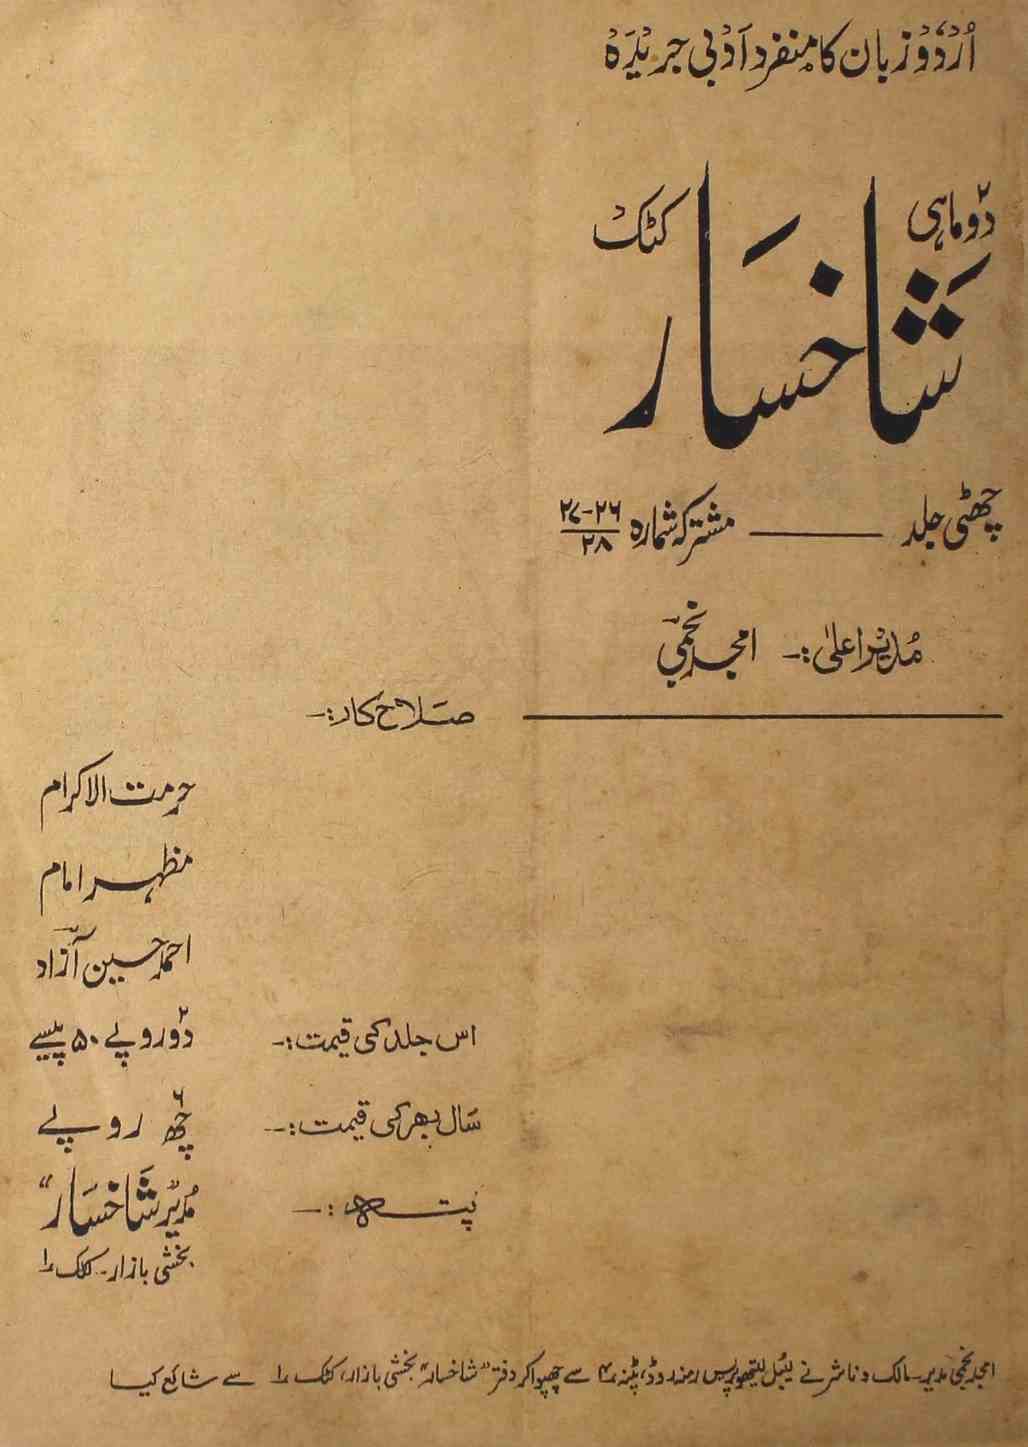 اُردُو زبان کا منفرد اَدبی جریدَہ
دو ماہی
شاخسار
کٹک
چھٹی جلد — مشترکہ شمارہ ۲۶-۲۷
۲۸
مُدیر اعلیٰ :- امجد نجمی
صلاح کار :-
حرمت الاکرام
مظہر امام
احمد حسین آزاد
اس جلد کی قیمت :- دو روپے ۵۰ پیسے
سال بھر کی قیمت :- چھ روپے
پتہ :- مُدیر شاخسار"
بخشی بازار۔ کٹک ۱
امجد نجمی مدیر۔ مالک و ناشر نے لیبل لیتھو پریس رمنہ روڈ، پٹنہ ۴ سے چھپوا کر دفتر "شاخسار" بخشی بازار، کٹک ۱ سے شائع کیا